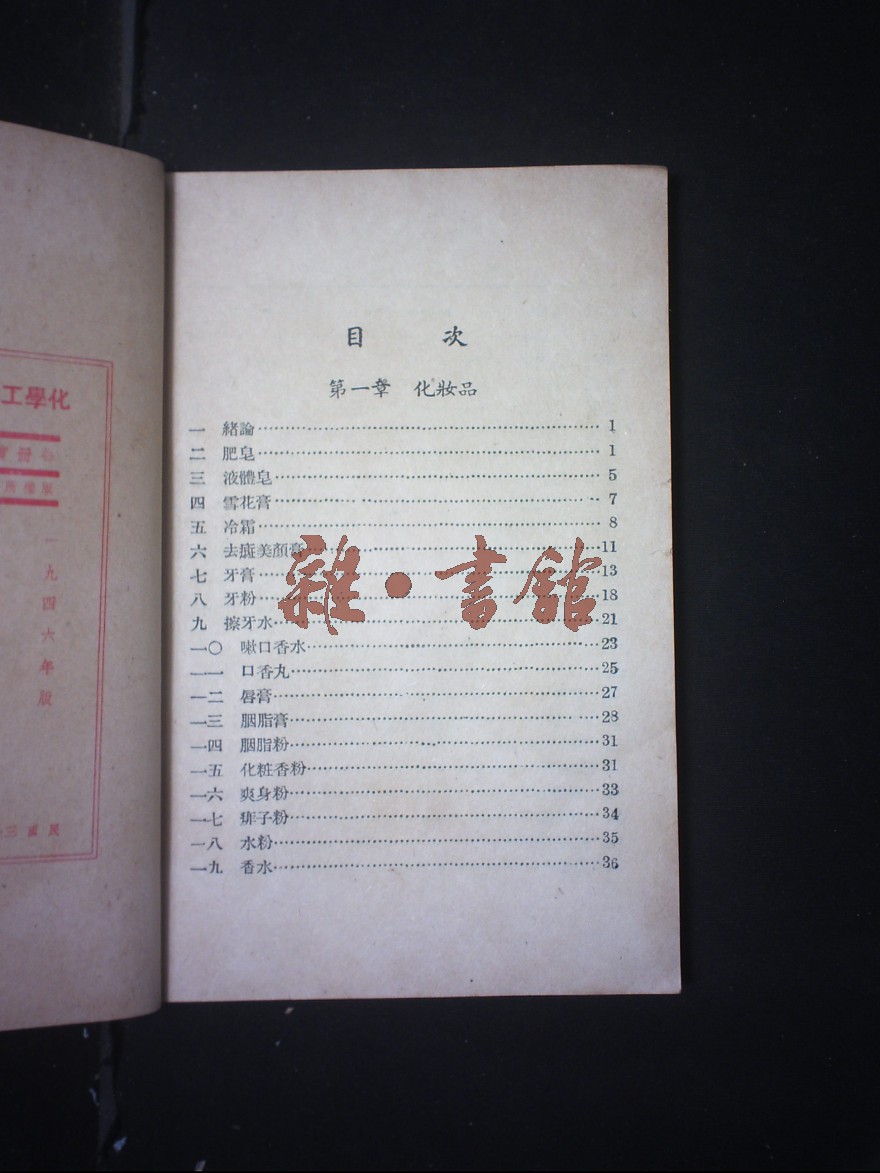 目 次
第一章 化妝品
一 緒論 1
二 肥皂 1
三 液體皂 5
四 雪花膏 7
五 冷霜 8
六 去斑美顏膏 11
七 牙膏 13
八 牙粉 18
九 擦牙水 21
一〇 嗽口香水 23
一一 口香丸 25
一二 唇膏 27
一三 胭脂膏 28
一四 胭脂粉 31
一五 化粧香粉 31
一六 爽身粉 33
一七 痱子粉 34
一八 水粉 35
一九 香水 36
雜·書館
化學工
一九四六年版
民國三